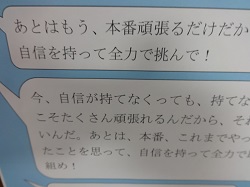 あとはもう、本番頑張るだけだか
自信を持って全力で挑んで！
今、自信が持てなくっても、持てな
こそたくさん頑張れるんだから、それ
いんだ。あとは、本番、これまでやっ
たことを思って、自信を持って全力で
組め！